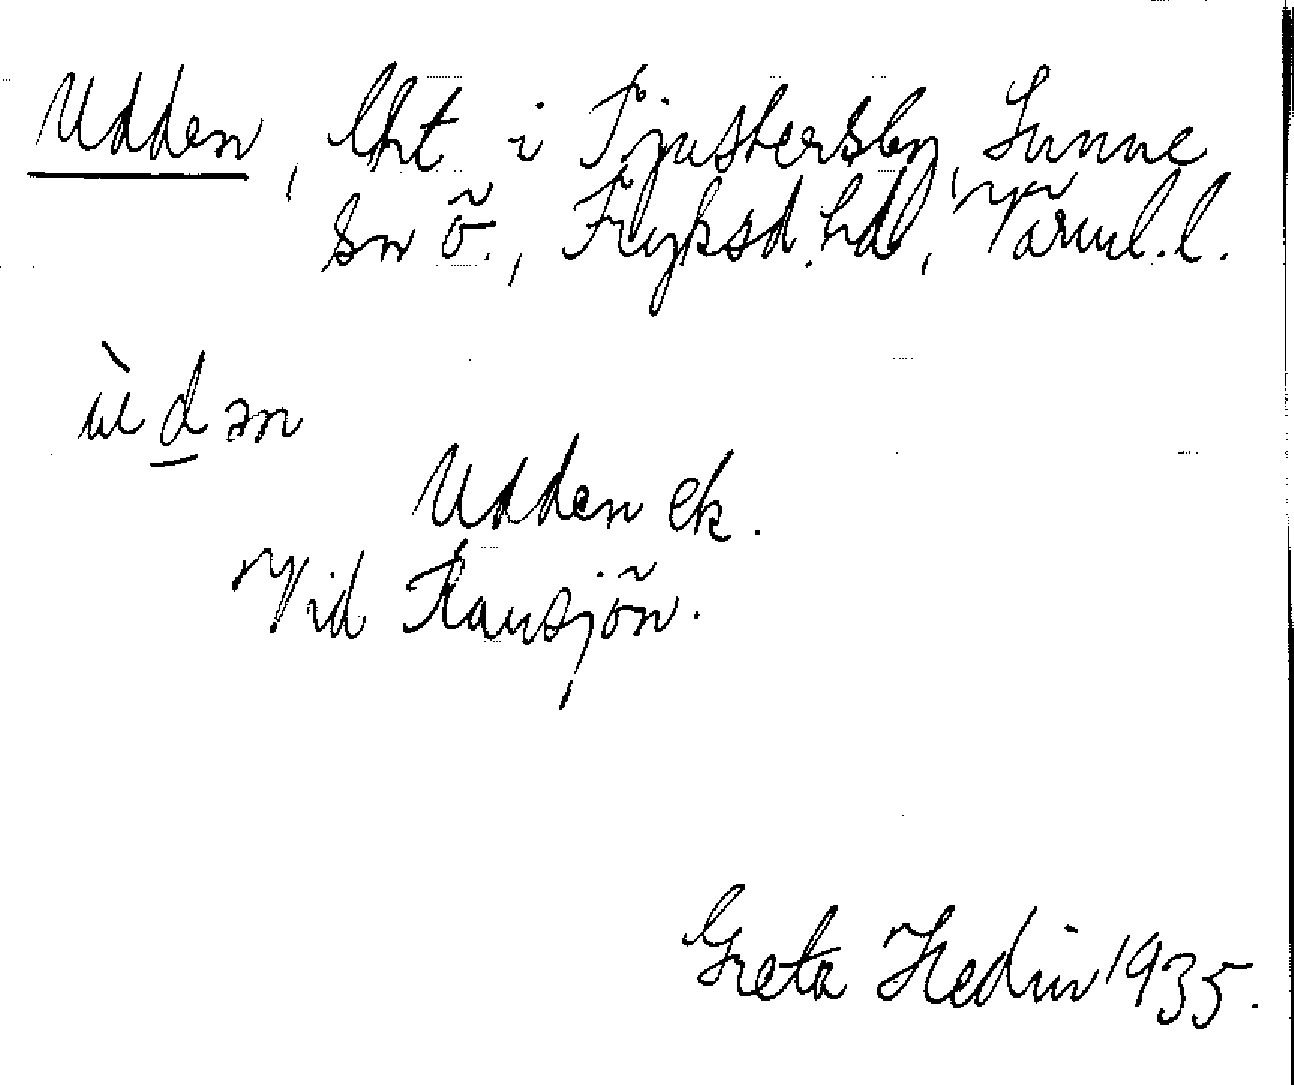 Udden, lht i Tjustersby, Sunne
sn ö., Fryksd. hd, Värml. l.
ùdən
Udden ek.
Vid Ransjön.
Greta Hedin 1935.